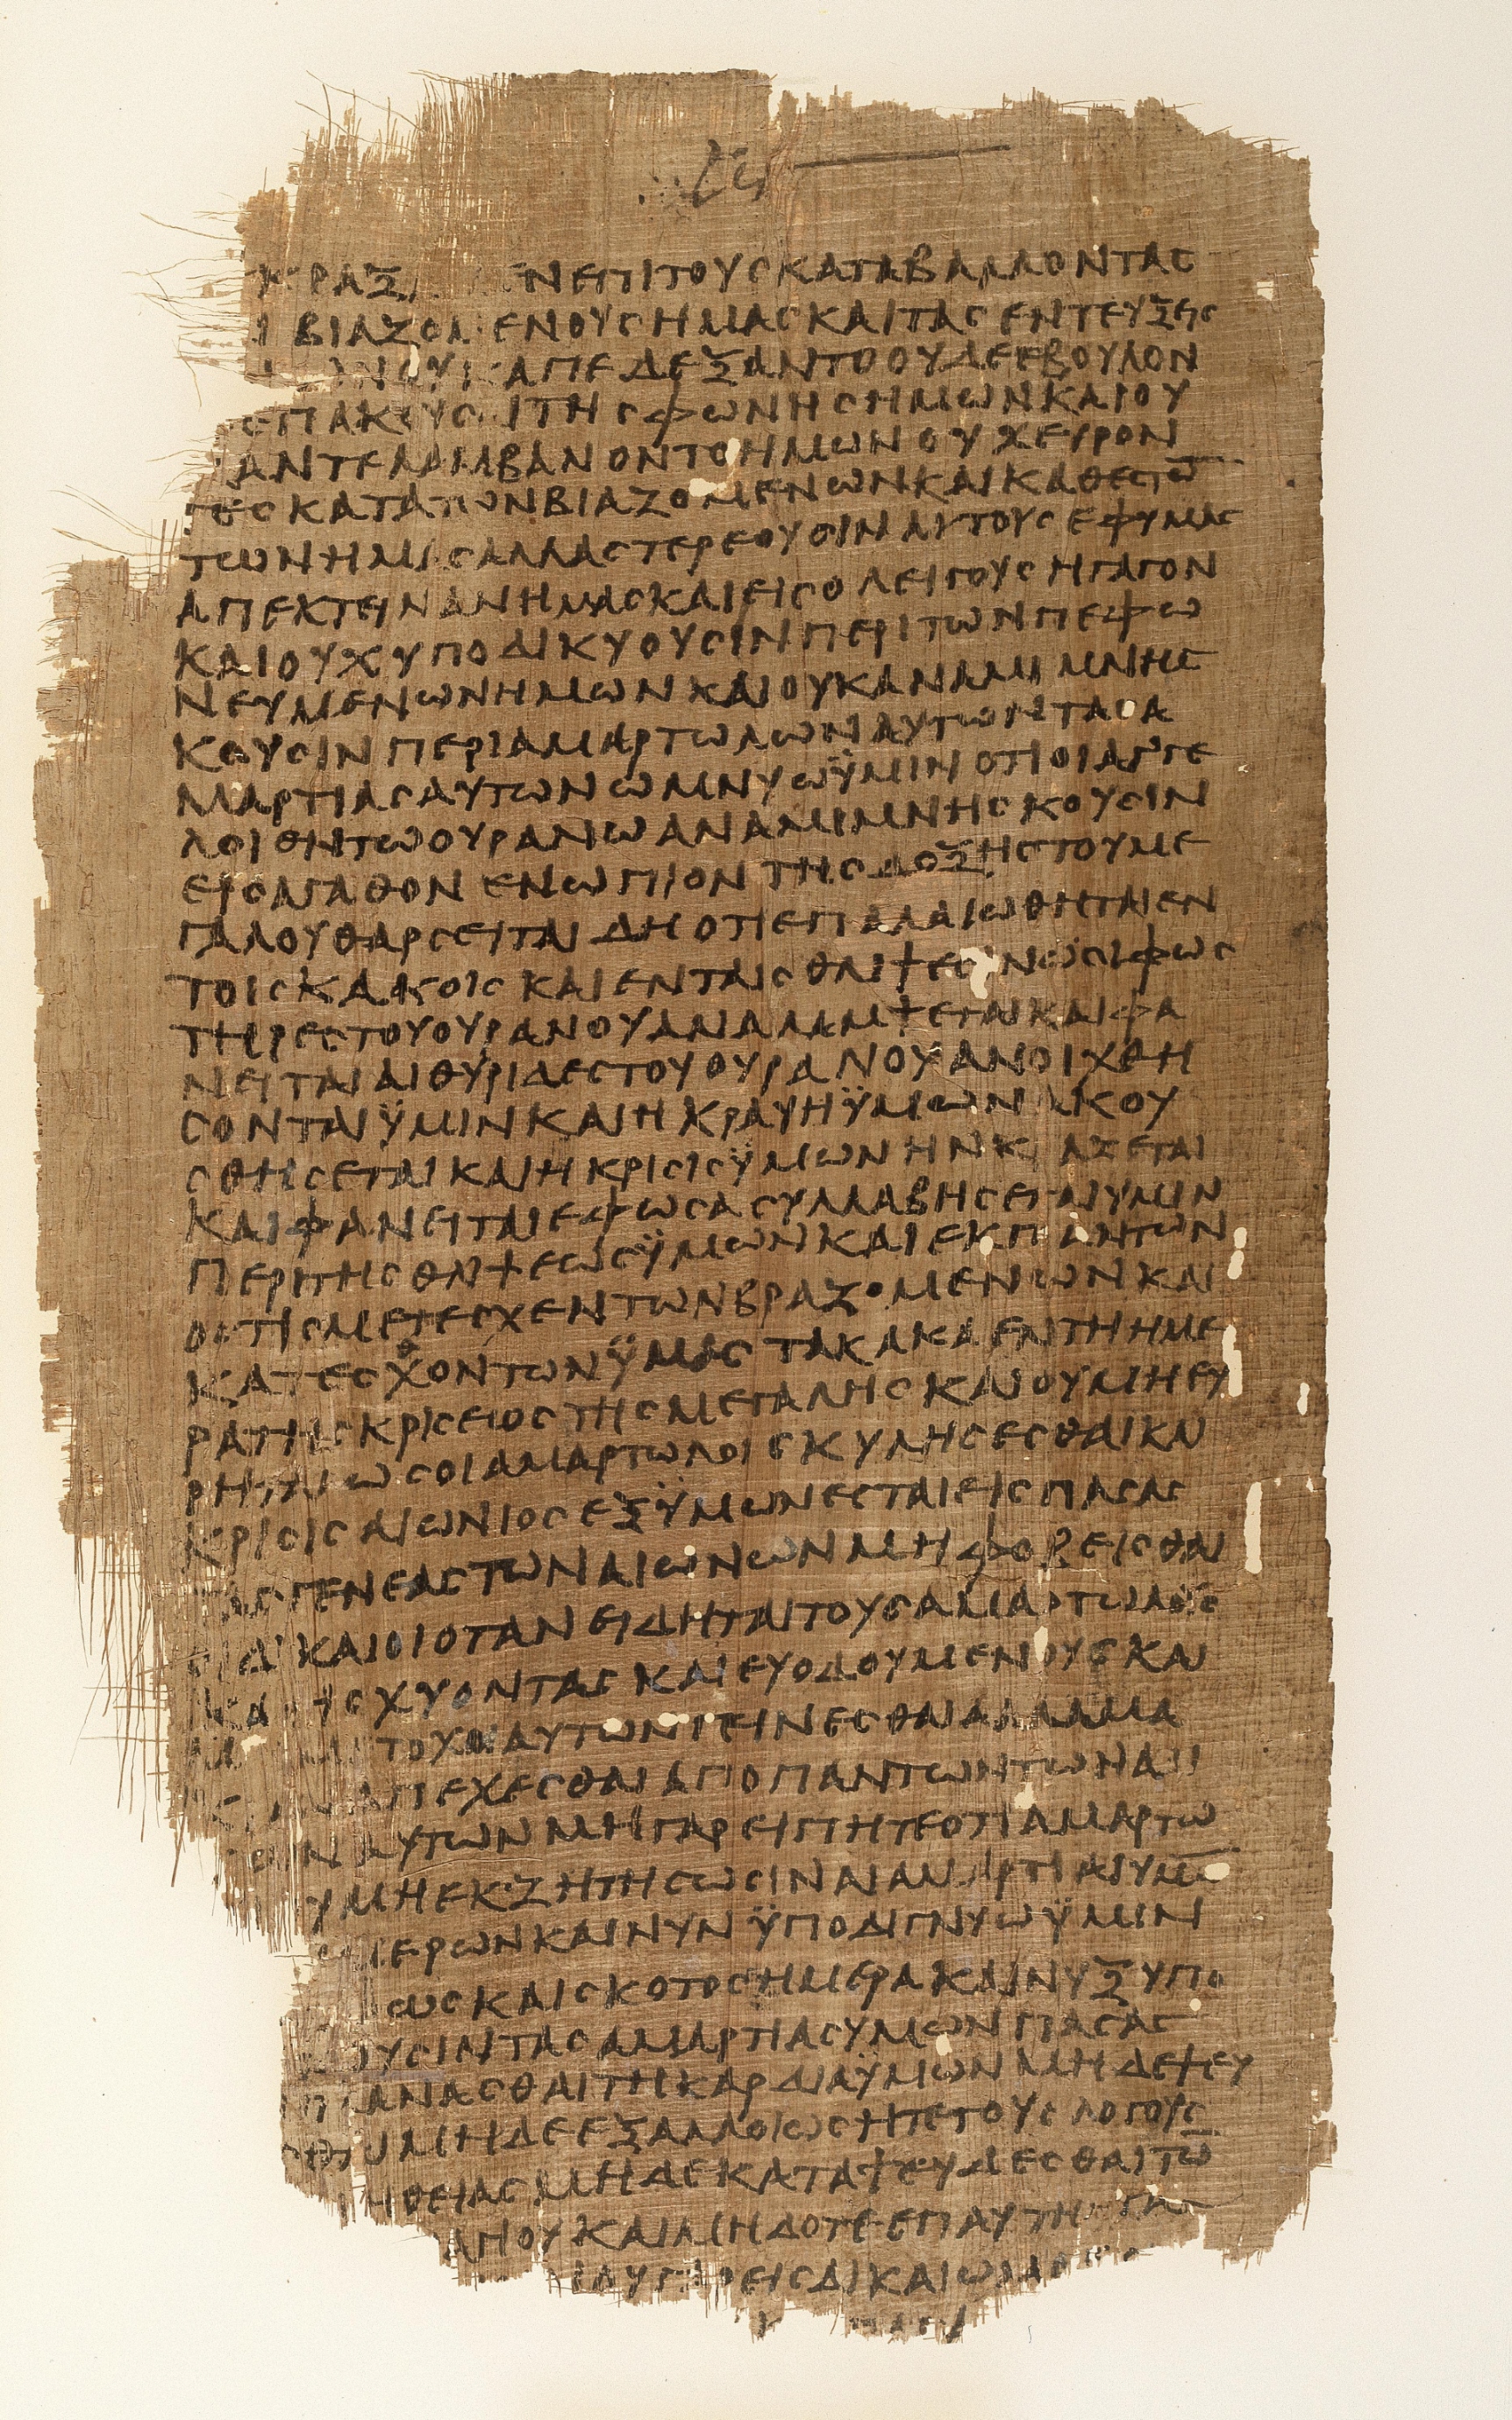 ΕΝΕΠΙΤΟΥϹΚΑΤΑΒΑΛΛΟΝΤΑϹ
ΒΙΑΖΟΜΕΝΟΥϹΗΜΑϹΚΑΙΤΑϹΕΝΤΕΥΞΕΙϹ
ΑΠΕΔΕΞΑΝΤΟΟΥΔΕΕΒΟΥΛΟΝ
ΕΠΑΚΟΥϹΑΙΤΗϹΦΩΝΗϹΗΜΩΝΚΑΙΟΥ
ΑΝΤΕΛΑΜΒΑΝΟΝΤΟΗΜΩΝΟΥΧΕΥΡΟΝ
ΤΕϹΚΑΤΑΤΩΝΒΙΑΖΟΜΕΝΩΝΚΑΙΚΑΘΕϹΤΩ̅
ΤΩΝΗΜΑϹΑΛΛΑϹΤΕΡΕΟΥϹΙΝΑΥΤΟΥϹΕΦΥΜΑϹ
ΑΠΕΚΤΕΙΝΑΝΗΜΑϹΚΑΙΕΙϹΟΛΕΙΓΟΥϹΗΓΑΓΟΝ
ΚΑΙΟΥΧΥΠΟΔΙΚΥΟΥϹΙΝΠΕΡΙΤΩΝΠΕΦΩ
ΝΕΥΜΕΝΩΝΗΜΩΝΚΑΙΟΥΚΑΝΑΜΙΜΝΗϹ
ΚΟΥϹΙΝΠΕΡΙΑΜΑΡΤΩΛΩΝΑΥΤΩΝΤΑϹΑ
ΜΑΡΤΙΑϹΑΥΤΩΝΩΜΝΥΩΫΜΙΝΟΤΙΟΙΑΓΓΕ
ΛΟΙΘΝΤΩΟΥΡΑΝΩΑΝΑΜΙΜΝΗϹΚΟΥϹΙΝ
ΕΙϹΑΓΑΘΟΝΕΝΩΠΙΟΝΤΗϹΔΟΞΗϹΤΟΥΜΕ
ΓΑΛΟΥΘΑΡϹΕΙΤΑΙΔΗΟΤΙΕΠΑΛΑΙΩΘΗΤΑΙΕΝ
ΤΟΙϹΚΑΚΟΙϹΚΑΙΕΝΤΑΙϹΘΛΙΨΕϹΙΝΩϹΙΦΩϹ
ΤΗΡΕϹΤΟΥΟΥΡΑΝΟΥΑΝΑΛΑΜΨΕΤΑΙΚΑΙΦΑ
ΝΕΙΤΑΙΑΙΘΥΡΙΔΕϹΤΟΥΟΥΡΑΝΟΥΑΝΟΙΧΘΗ
ϹΟΝΤΑΙΫΜΙΝΚΑΙΗΚΡΑΥΗΫΜΩΝΑΚΟΥ
ϹΘΗϹΕΤΑΙΚΑΙΗΚΡΙϹΙϹΫΜΩΝΗΝΚΡΑΞΕΤΑΙ
ΚΑΙΦΑΝΕΙΤΑΙΕΦΩϹΑϹΥΛΛΑΒΗϹΕΤΑΙΥΜΙΝ
ΠΕΡΙΤΗϹΘΛΙΨΕΩϹΫΜΩΝΚΑΙΕΚΠΑΝΤΩΝ
ΟϹΤΙϹΜΕΤΕϹΧΕΝΤΩΝΒΡΑΖΟΜΕΝΩΝΚΑΙ
ΚΑΤΕϹΧΟΝΤΩΝΫΜΑϹΤΑΚΑΚΑΕΝΤΗΗΜΕ
ΡΑΤΗϹΚΡΙϹΕΙΟϹΤΗϹΜΕΓΑΛΗϹΚΑΙΟΥΜΗΕΥ
ΡΗΤΑΙΩϹΟΙΑΜΑΡΤΩΛΟΙϹΚΥΛΗϹΕϹΘΑΙΚΑΙ
ΚΡΙϹΙϹΑΙΩΝΙΟϹΕΞΫΜΩΝΕϹΤΑΙΕΙϹΠΑϹΑϹ
ΤΑϹΓΕΝΕΑϹΤΩΝΑΙΩΝΩΝΜΗΦΟΒΕΙϹΘΑΙ
ΟΙΔΙΚΑΙΟΙΟΤΑΝΕΙΔΗΤΑΙΤΟΥϹΑΜΑΡΤΩΛΟΥϹ
ΚΑΤΙϹΧΥΟΝΤΑϹΚΑΙΕΥΟΔΟΥΜΕΝΟΥϹΚΑΙ
ΤΟΧΟΙΑΥΤΩΝΓΕΙΝΕϹΘΑΙΑΛΛΑΜΑ
ΑΠΕΧΕϹΘΑΙΑΠΟΠΑΝΤΩΝΤΩΝΑΔΙ
ΑΥΤΩΝΜΗΓΑΡΕΙΠΗΤΕΟΤΙΑΜΑΡΤΩ
ΥΜΗΕΚΖΗΤΗϹΩϹΙΝΑΙΑΜΑΡΤΙΑΙΥΜΩ̅
ΜΕΡΩΝΚΑΙΝΥΝΫΠΟΔΙΓΝΥΩΫΜΙΝ
ΩϹΚΑΙϹΚΟΤΟϹΗΜΕΡΑΚΑΙΝΥΞΥΠΟ
ΟΥϹΙΝΤΑϹΑΜΑΡΤΙΑϹΥΜΩΝΠΑϹΑϹ
ΑΝΑϹΘΑΙΤΗΚΑΡΔΙΑΫΜΩΝΜΗΔΕΨΕΥ
ΜΗΔΕΕΞΑΛΛΟΙΩϹΗΤΕΤΟΥϹΛΟΓΟΥϹ
ΗΘΕΙΑϹΜΗΔΕΚΑΤΑΨΕΥΔΕϹΘΑΙΤΩ̅
ΑΓΙΟΥΚΑΙΜΗΔΟΤΕΕΠΑΥΤΗ
ΕΙϹΔΙΚΑΙΩΜΑ